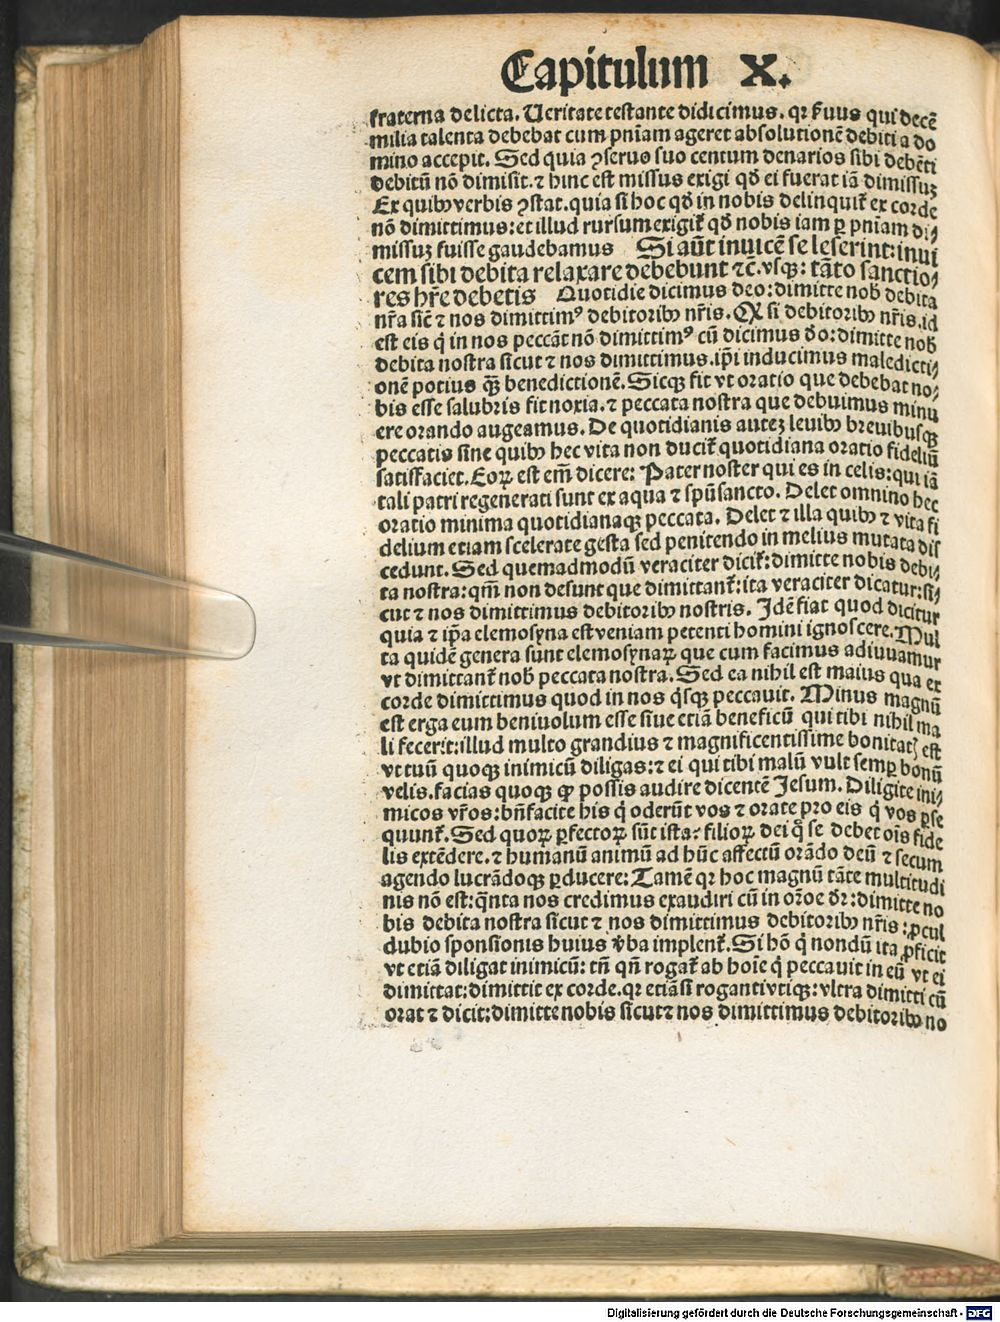 Capitulum X.
fraterna delicta. Ueritate testante didicimus. qꝛ ẜuus qui decē
milia talenta debebat cum pn̄iam ageret absolutionē debiti a do
mino accepit. Sed quia ꝯseruo suo centum denarios sibi debēti
debitū nō dimisit. ⁊ hinc est missus exigi qd̛ ei fuerat iā dimissuꝫ
Ex quibꝰ verbis ꝯstat. quia si hoc qd̛ in nobis delinquit̄ ex corde
nō dimittimus: et illud rursum exigit̄ qd̛ nobis iam ꝑ pn̄iam di⸗
missuꝫ fuisse gaudebamus Si aūt inuicē se leserint: inui
cem sibi debita relaxare debebunt ⁊c̄. vsqꝫ: tāto sanctio⸗
res hr̄e debetis Quotidie dicimus deo: dimitte nob̄ debita
nr̄a sic̄ ⁊ nos dimittimꝰ debitoribꝰ nr̄is. Qꝛ si debitoribꝰ nr̄is. id
est eis q̇ in nos peccāt nō dimittimꝰ cū dicimus do: dimitte nob̄
debita nostra sicut ⁊ nos dimittimus. ip̄i inducimus maledicti⸗
onē potius qꝫ̄ benedictionē. Sicqꝫ fit vt oratio que debebat no⸗
bis esse salubris fit noxia. ⁊ peccata nostra que debuimus minu
ere orando augeamus. De quotidianis auteꝫ leuibꝰ breuibusqꝫ
peccatis sine quibꝰ hec vita non ducit̄ quotidiana oratio fideliū
satisfaciet. Eoꝝ est em̄ dicere: Pater noster qui es in celis: qui iā
tali patri regenerati sunt ex aqua ⁊ spū sancto. Delet omnino hec
oratio minima quotidianaqꝫ peccata. Delet ⁊ illa quibꝰ ⁊ vita fi
delium etiam scelerate gesta sed penitendo in melius mutata dis
cedunt. Sed quemadmodū veraciter dicit̄: dimitte nobis debi⸗
ta nostra: qm̄ non desunt que dimittant̄: ita veraciter dicatur: si⸗
cut ⁊ nos dimittimus debitoribꝰ nostris. Idē fiat quod dicitur
quia ⁊ ip̄a elemosyna est veniam petenti homini ignoscere. Mul
ta quidē genera sunt elemosynaꝝ que cum facimus adiuuamur
vt dimittant̄ nob̄ peccata nostra. Sed ea nihil est maius qua ex
corde dimittimus quod in nos q̇sqꝫ peccauit. Minus magnū
est erga eum beniuolum esse siue etiā beneficū qui tibi nihil ma
li fecerit: illud multo grandius ⁊ magnificentissime bonitatꝭ est
vt tuū quoqꝫ inimicū diligas: ⁊ ei qui tibi malū vult semꝑ bonū
velis. facias quoqꝫ ꝙ possis audire dicentē Jesum. Diligite ini⸗
micos vr̄os: bn̄facite his q̇ oderūt vos ⁊ orate pro eis q̇ vos ꝑse
quunt̄. Sed quoꝝ ꝑfectoꝝ sūt ista: filioꝝ dei q̇ se debet ois̄ fide
lis extēdere. ⁊ humanū animū ad hūc affectū orādo deū ⁊ secum
agendo luctādoqꝫ ꝑducere: Tamē qꝛ hoc magnū tāte multitudi
nis nō est: qn̄ta nos credimus exaudiri cū in or̄oe dr̄: dimitte no
bis debita nostra sicut ⁊ nos dimittimus debitoribꝰ nr̄is: ꝓcul
dubio sponsionis huius v̄ba implent̄. Si hō q̇ nondū ita ꝓficit
vt etiā diligat inimicū: tn̄ qn̄ rogat̄ ab hoīe q̇ peccauit in eū vt ei
dimittat: dimittit ex corde. qꝛ etiā si roganti vtiqꝫ: vltra dimitti cū
orat ⁊ dicit: dimitte nobis sicut ⁊ nos dimittimus debitoribꝰ no
Digitalisierung gefördert durch die Deutsche Forschungsgemeinschaft - DFG